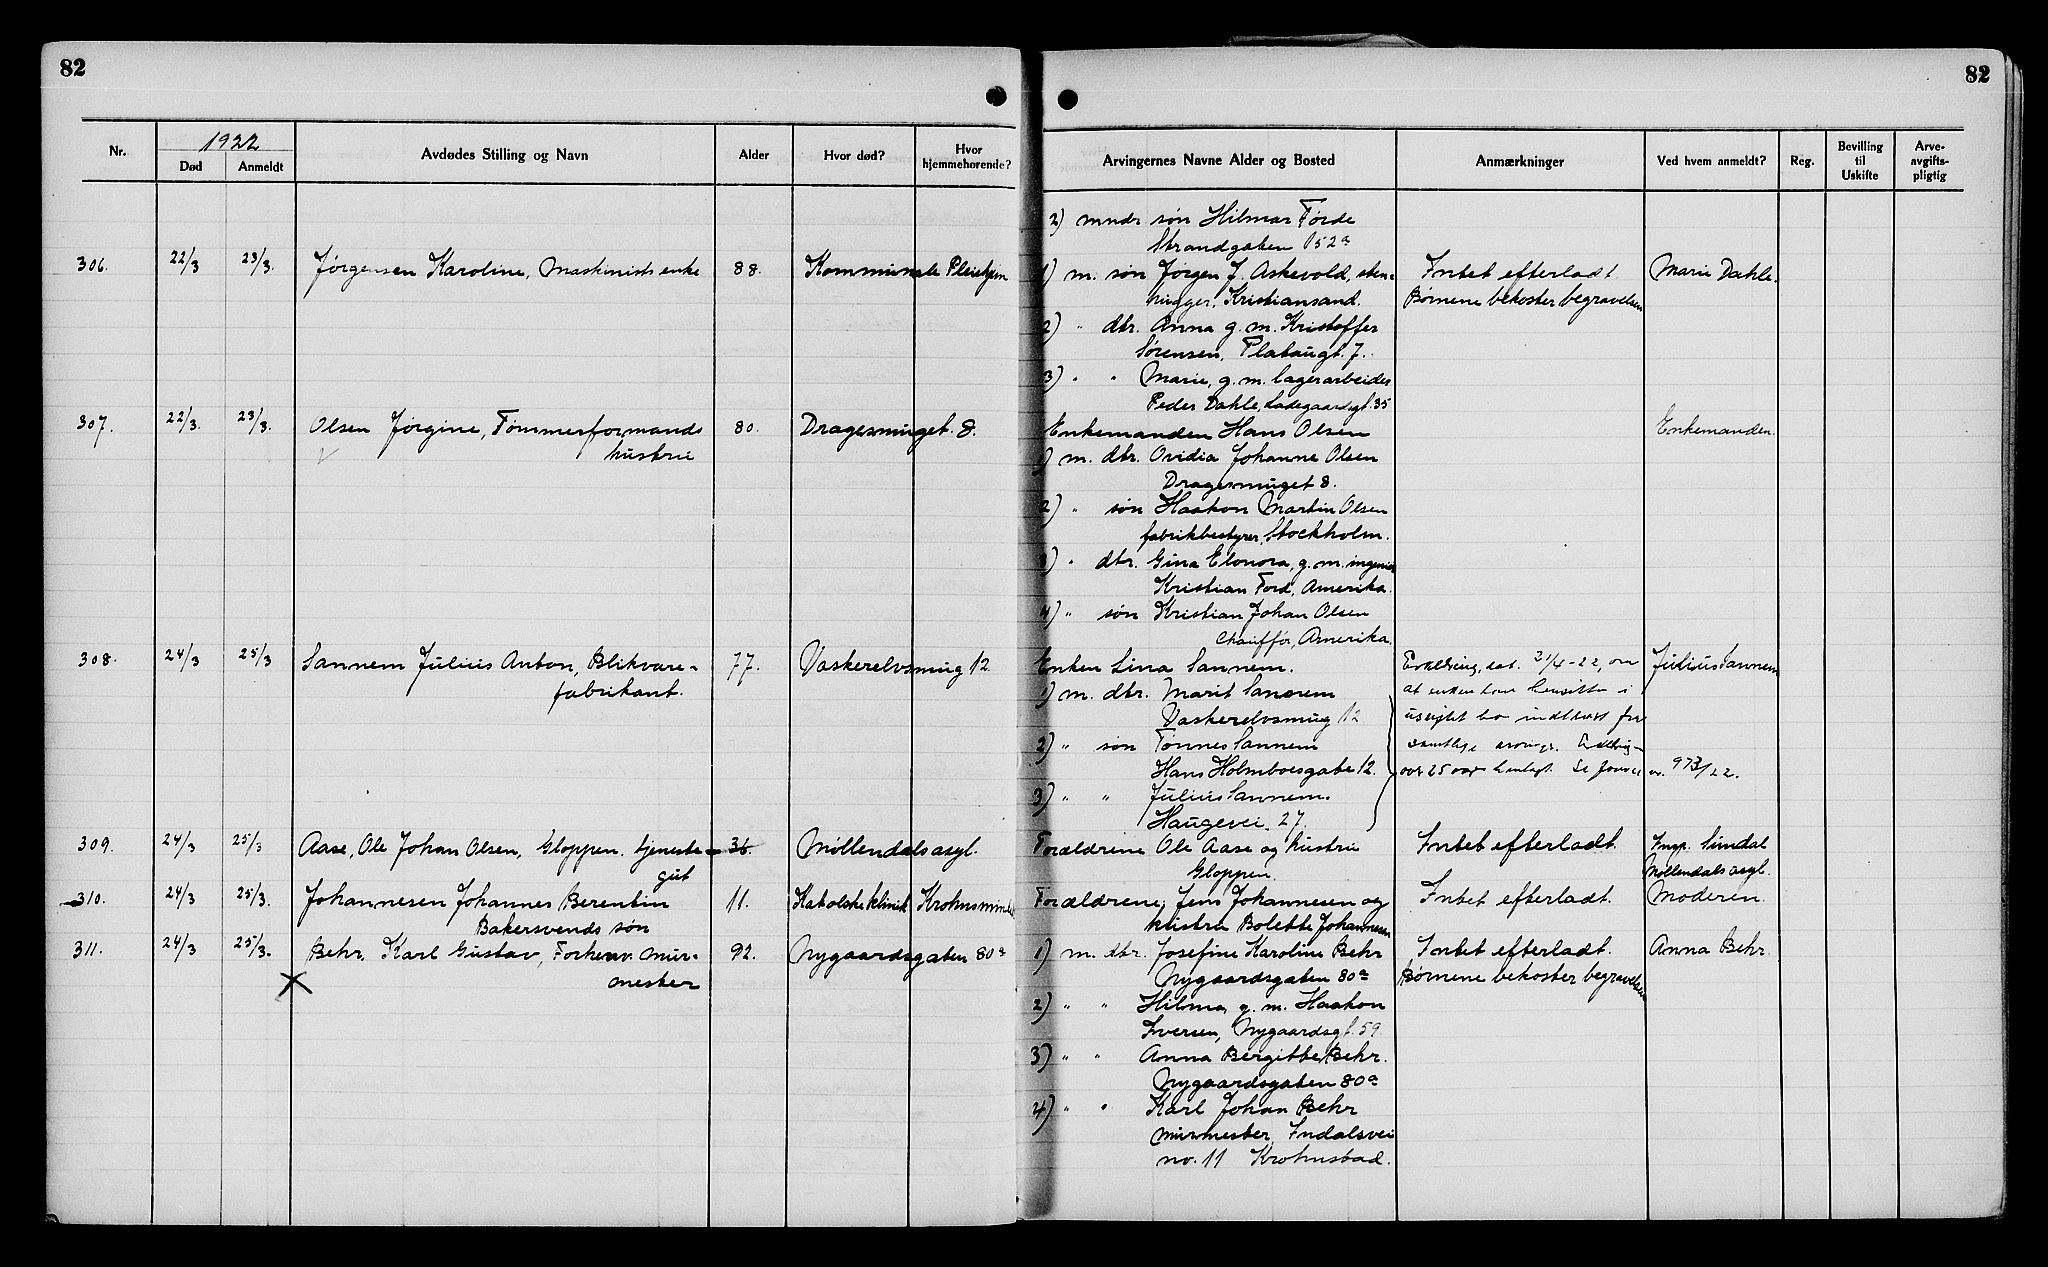 82
82
1922
Nr.
Død
Anmeldt
Avdødes Stilling og Navn
Alder
Hvor død?
Hvor hjemmehørende?
Arvingernes Navne Alder og Bosted
Anmærkninger
Ved hvem anmeldt?
Reg.
Bevilling til Uskifte
Arve-avgifts-pligtig
2) mndr søn Hilmar Førde
Strandgaten 152a
306. 22/3 23/3. Jørgensen Karoline, Maskinists enke 88. Kommunale Pleiehjem
1) m. søn Jørgen J. Askevold, sten-
hugger, Kristiansand.
2) " dtr. Anna g. m. Kristoffer
Sørensen, Plataugt. 7.
3) " " Marie, g. m. lagerarbeider
Peder Dahle, Ladegaardsgt. 35
Intet efterladt
Børnene bekoster begravelsen
Marie Dahle.
307. 22/3. 23/3. Olsen Jørgine, Tømmerformands 80. Dragesmuget 8.
hustru
Enkemanden Hans Olsen
1) m. dtr. Ovidia Johanne Olsen
Dragesmuget 8.
2) " søn Haakon Martin Olsen
fabrikbestyrer, Stockholm.
3) " dtr. Gina Elonora, g. m. ingeniør
Kristian Ford, Amerika.
4) " søn Kristian Johan Olsen
Chauffør, Amerika.
Enkemanden.
308. 24/3 25/3 Sannem Julius Anton, Blikvare- 77. Vaskerelvsmug 12
fabrikant.
Enken Lina Sannem.
1) m. dtr. Marit Sannem
Vaskerelvsmug 12
2) " søn Tønnes Sannem
Hans Holmboesgate 12.
3) " " Julius Sannem.
Haugevei 27.
Erklæring, dat. 21/4-22, om
at enken
uskiftet bo indtraadt for
samtlige arvinger.
over 25 aar henlagt. Se nr. 973/22.
Julius Sannem
309. 24/3 25/3 Aase, Ole Johan Olsen, Gloppen. tjeneste- 36. Møllendalsasyl.
gut
Forældrene Ole Aase og hustru
Gloppen.
Intet efterladt.
Insp. Sundal
Møllendals asyl.
310. 24/3 25/3. Johannesen Johannes Berentin 11. Katolske klinik Krohnsminde
Bakersvends søn
Forældrene, Jens Johannesen og
hustru Bolette Johannesen
Intet efterladt.
Moderen.
311. 24/3 25/3. Behr, Karl Gustav, Forhenv. Mur- 92. Nygaardsgaten 80a
mester
1) m. dtr. Josefine Karoline Behr
Nygaardsgaten 80a
2) " " Hilma, g. m. Haakon
Iversen, Nygaardsgt. 59.
3) " " Anna Bergitte Behr.
Nygaardsgaten 80a
4) " " Karl Johan Behr
murmester, Indalsvei
no. 11 Krohnstad.
Intet efterladt.
Børnene bekoster begravelsen
Anna Behr.